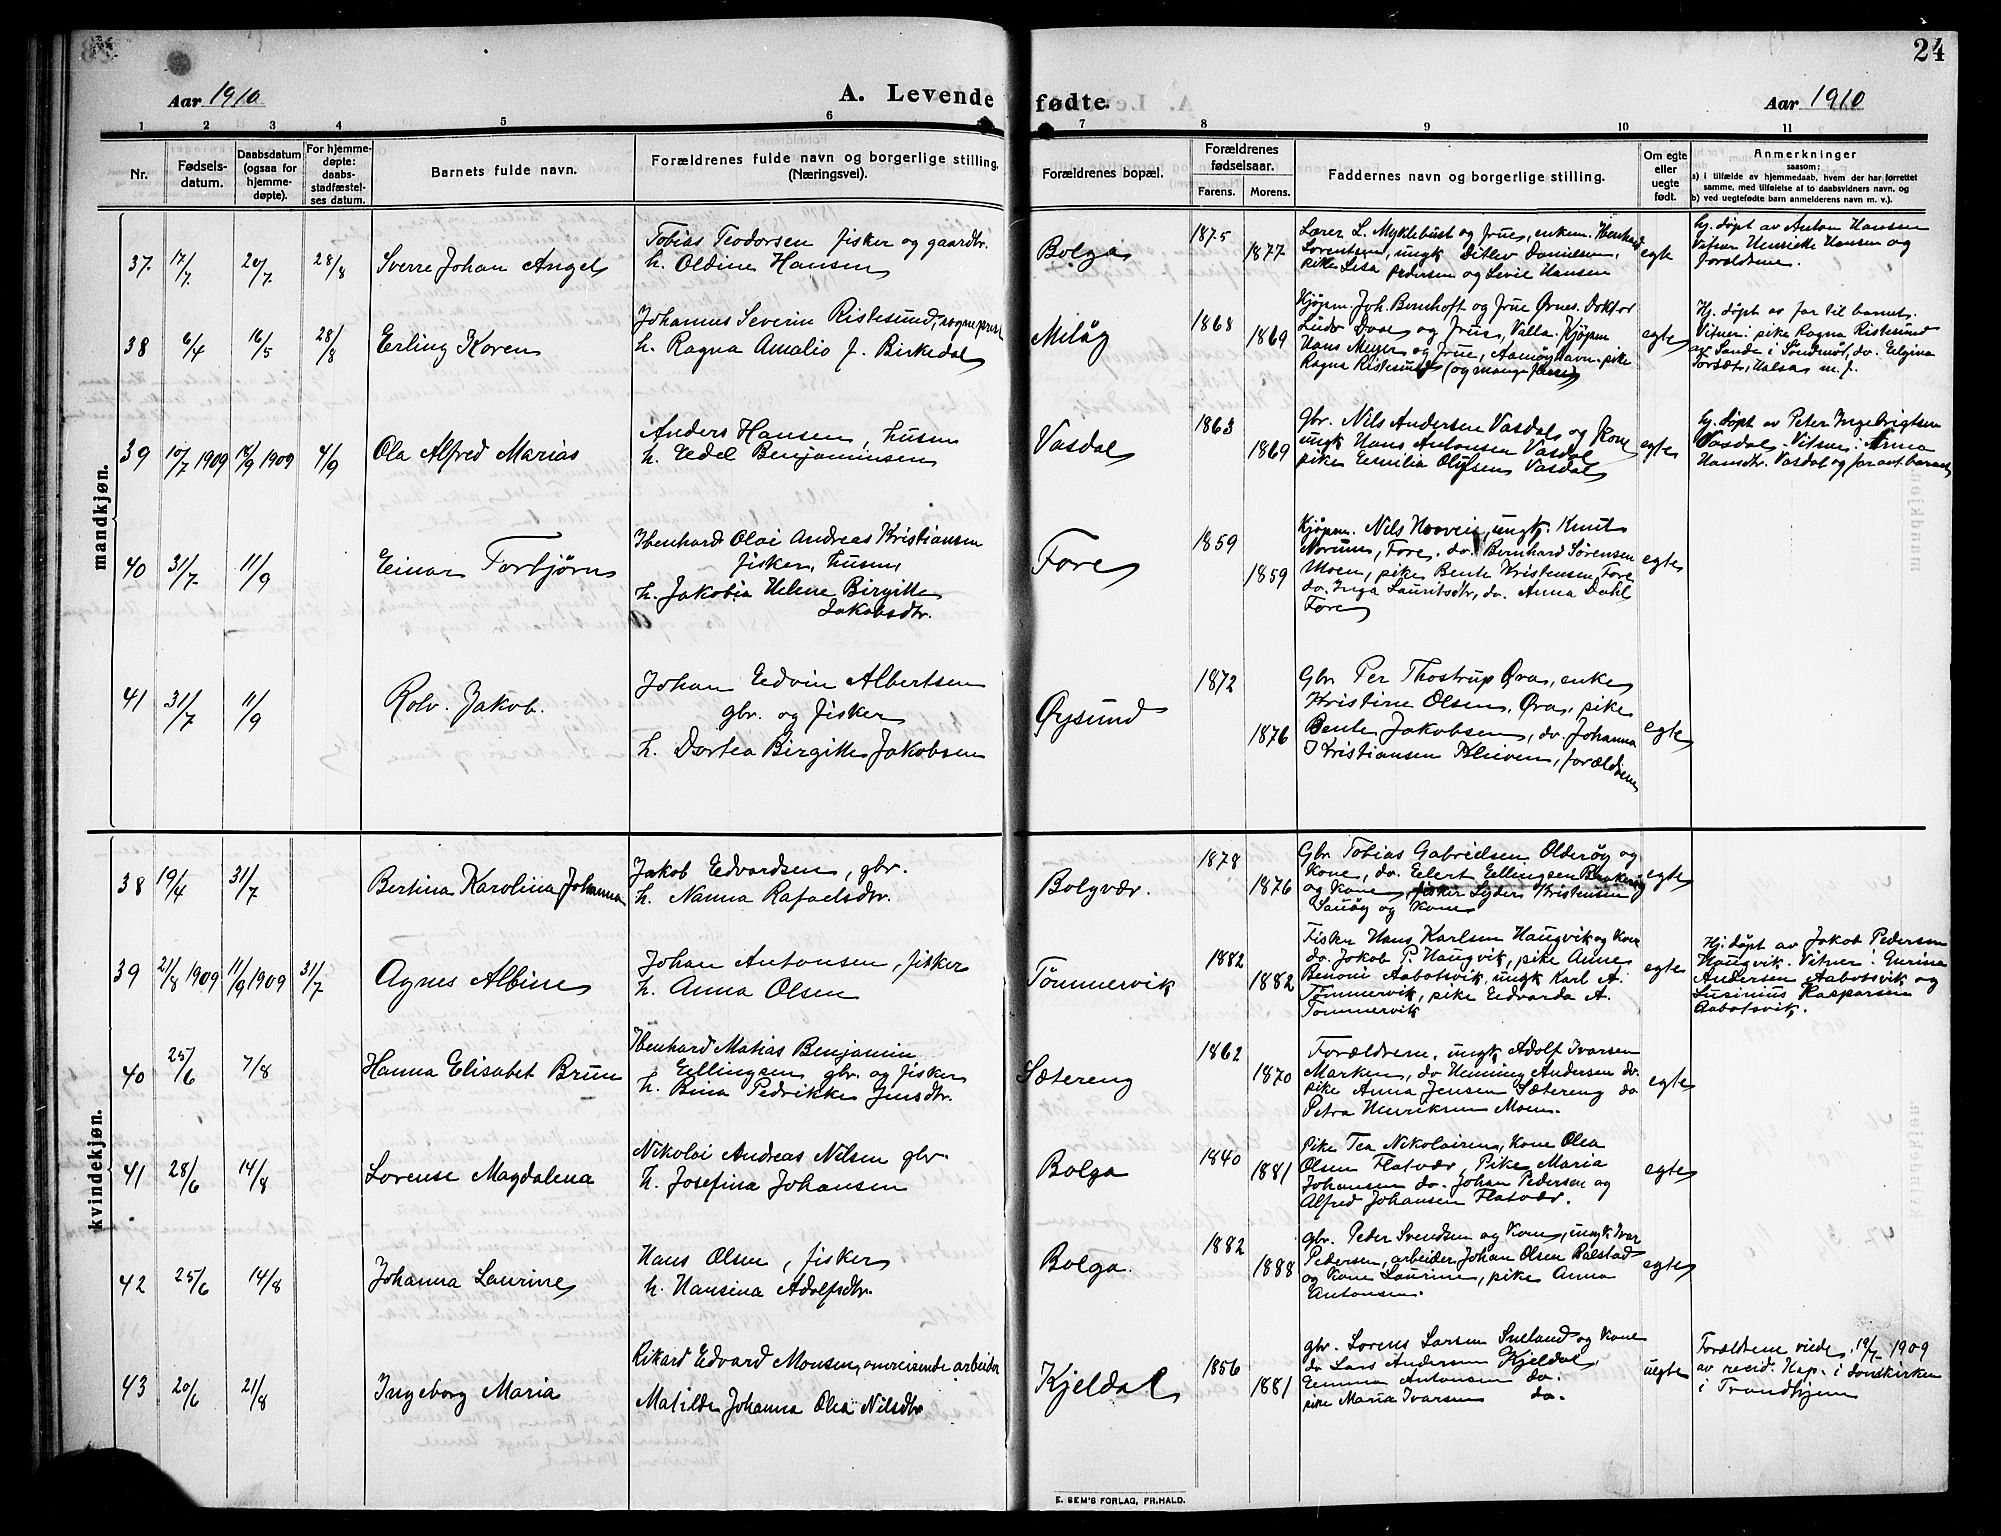 24
Aar 1910
A. Levende fødte.
Aar 1910
1 2 3 4 5 6 7 8 9 10 11
Nr.
Fødsels-
datum.
Daabsdatum
(ogsaa for
hjemme-
døpte).
For hjemme-
døpte: daabs-
stadfæstel-
ses datum.
Barnets fulde navn.
Forældrenes fulde navn og borgerlige stilling.
(Næringsvei).
Forældrenes bopæl.
Forældrenes
fødselsaar.
Farens. Morens.
Faddernes navn og borgerlige stilling.
Om egte
eller
uegte
født.
Anmerkninger
saasom:
a) i tilfælde av hjemmedaab, hvem der har forrettet
samme, med tilføielse af to daabsvidners navn, og
b) ved uegtefødte barn anmelderens navn m. v.).
mandkjøn.
37. 17/7 20/7 28/8 Sverre Johan Angel
Tobias Teodorsen fisker og gaardbr.
h. Oldine Hansen
Bolga
1875 1877
Lærer L. Myklebust og frue, enkem.
Lorentsen, ungk Ditlev Danielsen,
pike Lisa Pedersen og Levil Hansen
egte
Hj. døpt av Anton Hansen
Vitner Henrikke Hansen og
forældrene.
38 6/4 16/5 28/8 Erling Koren
Johannes Severin Ristesund, sogneprest
h. Ragna Amalie f. Birkedal
Meløy
1868 1869
Kjøpm. Joh. Bernhoft og frue Ørnes. Doktor
og frue, Valla. Kjøpm
Hans Meyer og frue, Aamøyhavn. pike
Ragna Ristesund (og mange flere)
egte
Hj. døpt av far til barnet.
Vitner: pike Ragna Ristesund
av Sande i Søndmør, do. Elgina
Torsæt, Halsa m. f.
39 10/7 1909 12/9 1909 4/9 Ola Alfred Marias
Anders Hansen, husm
h. Edel Benjaminsen
Vasdal
1863 1869
Gbr. Nils Andersen Vasdal og Kone
ungk Hans Antonsen Vasdal
pike Emilia Olufsen Vasdal
egte
Hj. døpt av Peter Ingebrigtsen
Vasdal. Vitner: Anna
Hansdtr. Vasdal og far at barnet
40 31/7 11/9 Einar Torbjørn
Ibenhard Olai Andreas Kristiansen
fisker, husm,
h. Jakobia Helene Birgitte
Jakobsdtr.
Fore
1859 1859
Kjøpm. Nils, ungk. Knut
Norum, Fore. do. Bernhard Sørensen
Moen, pike Bente Kristensen Fore
do. Inga Lauritsdtr, do. Anna Dahl
Fore
egte
41 31/7 11/9 Rolv. Jakob.
Johan Edvin Albertsen
gbr. og fisker
h. Dortea Birgitte Jakobsen
Øysund
1872 1876
Gbr Per Thostrup Øra, enke
Kristine Olsen, Øra, pike
Bente Jakobsen, do. Johanna
Kristiansen, forældrene
egte
kvindekjøn.
38 19/4 31/7 Bertina Karolina Johanna
Jakob Edvardsen, gbr.
h. Nanna Rafaelsdtr.
Bolgvær.
1878 1876
Gbr. Tobias Gabrielsen Olderøy og
Kone, do. Eilert Ellingsen
og Kone, fisker Lyder Kristensen
og Kone
egte
39 21/8 1909 11/9 1909 31/7 Agnes Albine
Johan Antonsen, fisker
h. Anna Olsen
Tømmervik
1882 1882
Fisker Hans Karlsen Haugvik og Kone
do. Jakob P. Haugvik, pike Anne
Benoni Aabotsvik, ungk Karl A.
Tømmervik, pike Edvarda A.
Tømmervik
egte
Hj. døpt av Jakob Pedersen
Haugvik. Vitner: Gurina
Andersen Aabotsvik og
Lusinius Kasparsen
Aabotsvik.
40 25/6 7/8 Hanna Elisabet Brun
Ibenhard Matias Benjamin
Ellingsen gbr. og fisker
h. Bina Pedrikke Jensdtr.
Sætereng
1862 1870
Forældrene, ungk, Adolf Ivarsen
Marken, do Heming Andersen do.
pike Anna Jensen Sætereng do
Petra Henriksen Moen.
egte
41 28/6 14/8 Lorense Magdalena
Nikolai Andreas Nilsen gbr.
h. Josefina Johansen
Bolga
1840 1881
Pike Tea Nikolaisen, Kone Olea
Olsen Flatvær, Pike Maria
Johansen do. Johan Pedersen og
Alfred Johansen Flatvær.
egte
42 25/6 14/8 Johanna Laurine
Hans Olsen, fisker
h. Hansina Adolfsdtr.
Bolga.
1882 1888
gbr. Peder Svendsen og Kone, ungk Ivar
Pedersen, arbeider Johan Olsen
og Kone Laurine, pike Anna
Antonsen.
egte
43 20/6 21/8 Ingeborg Maria
Rikard Edvard Monsen, omreisende arbeider
Matilde Johanna Olea Nilsdtr
Kjeldal
1856 1881
gbr. Lorens Larsen Sneland og Kone
do Lars Andersen Kjeldal,
Emma Antonsen do.
pike Maria Ivarsen do.
uegte
Forældrene viede 19/7 1909
av resid. Kap. i Domkirken
i Trondhjem
E. SEM'S FORLAG, FR.HALD.